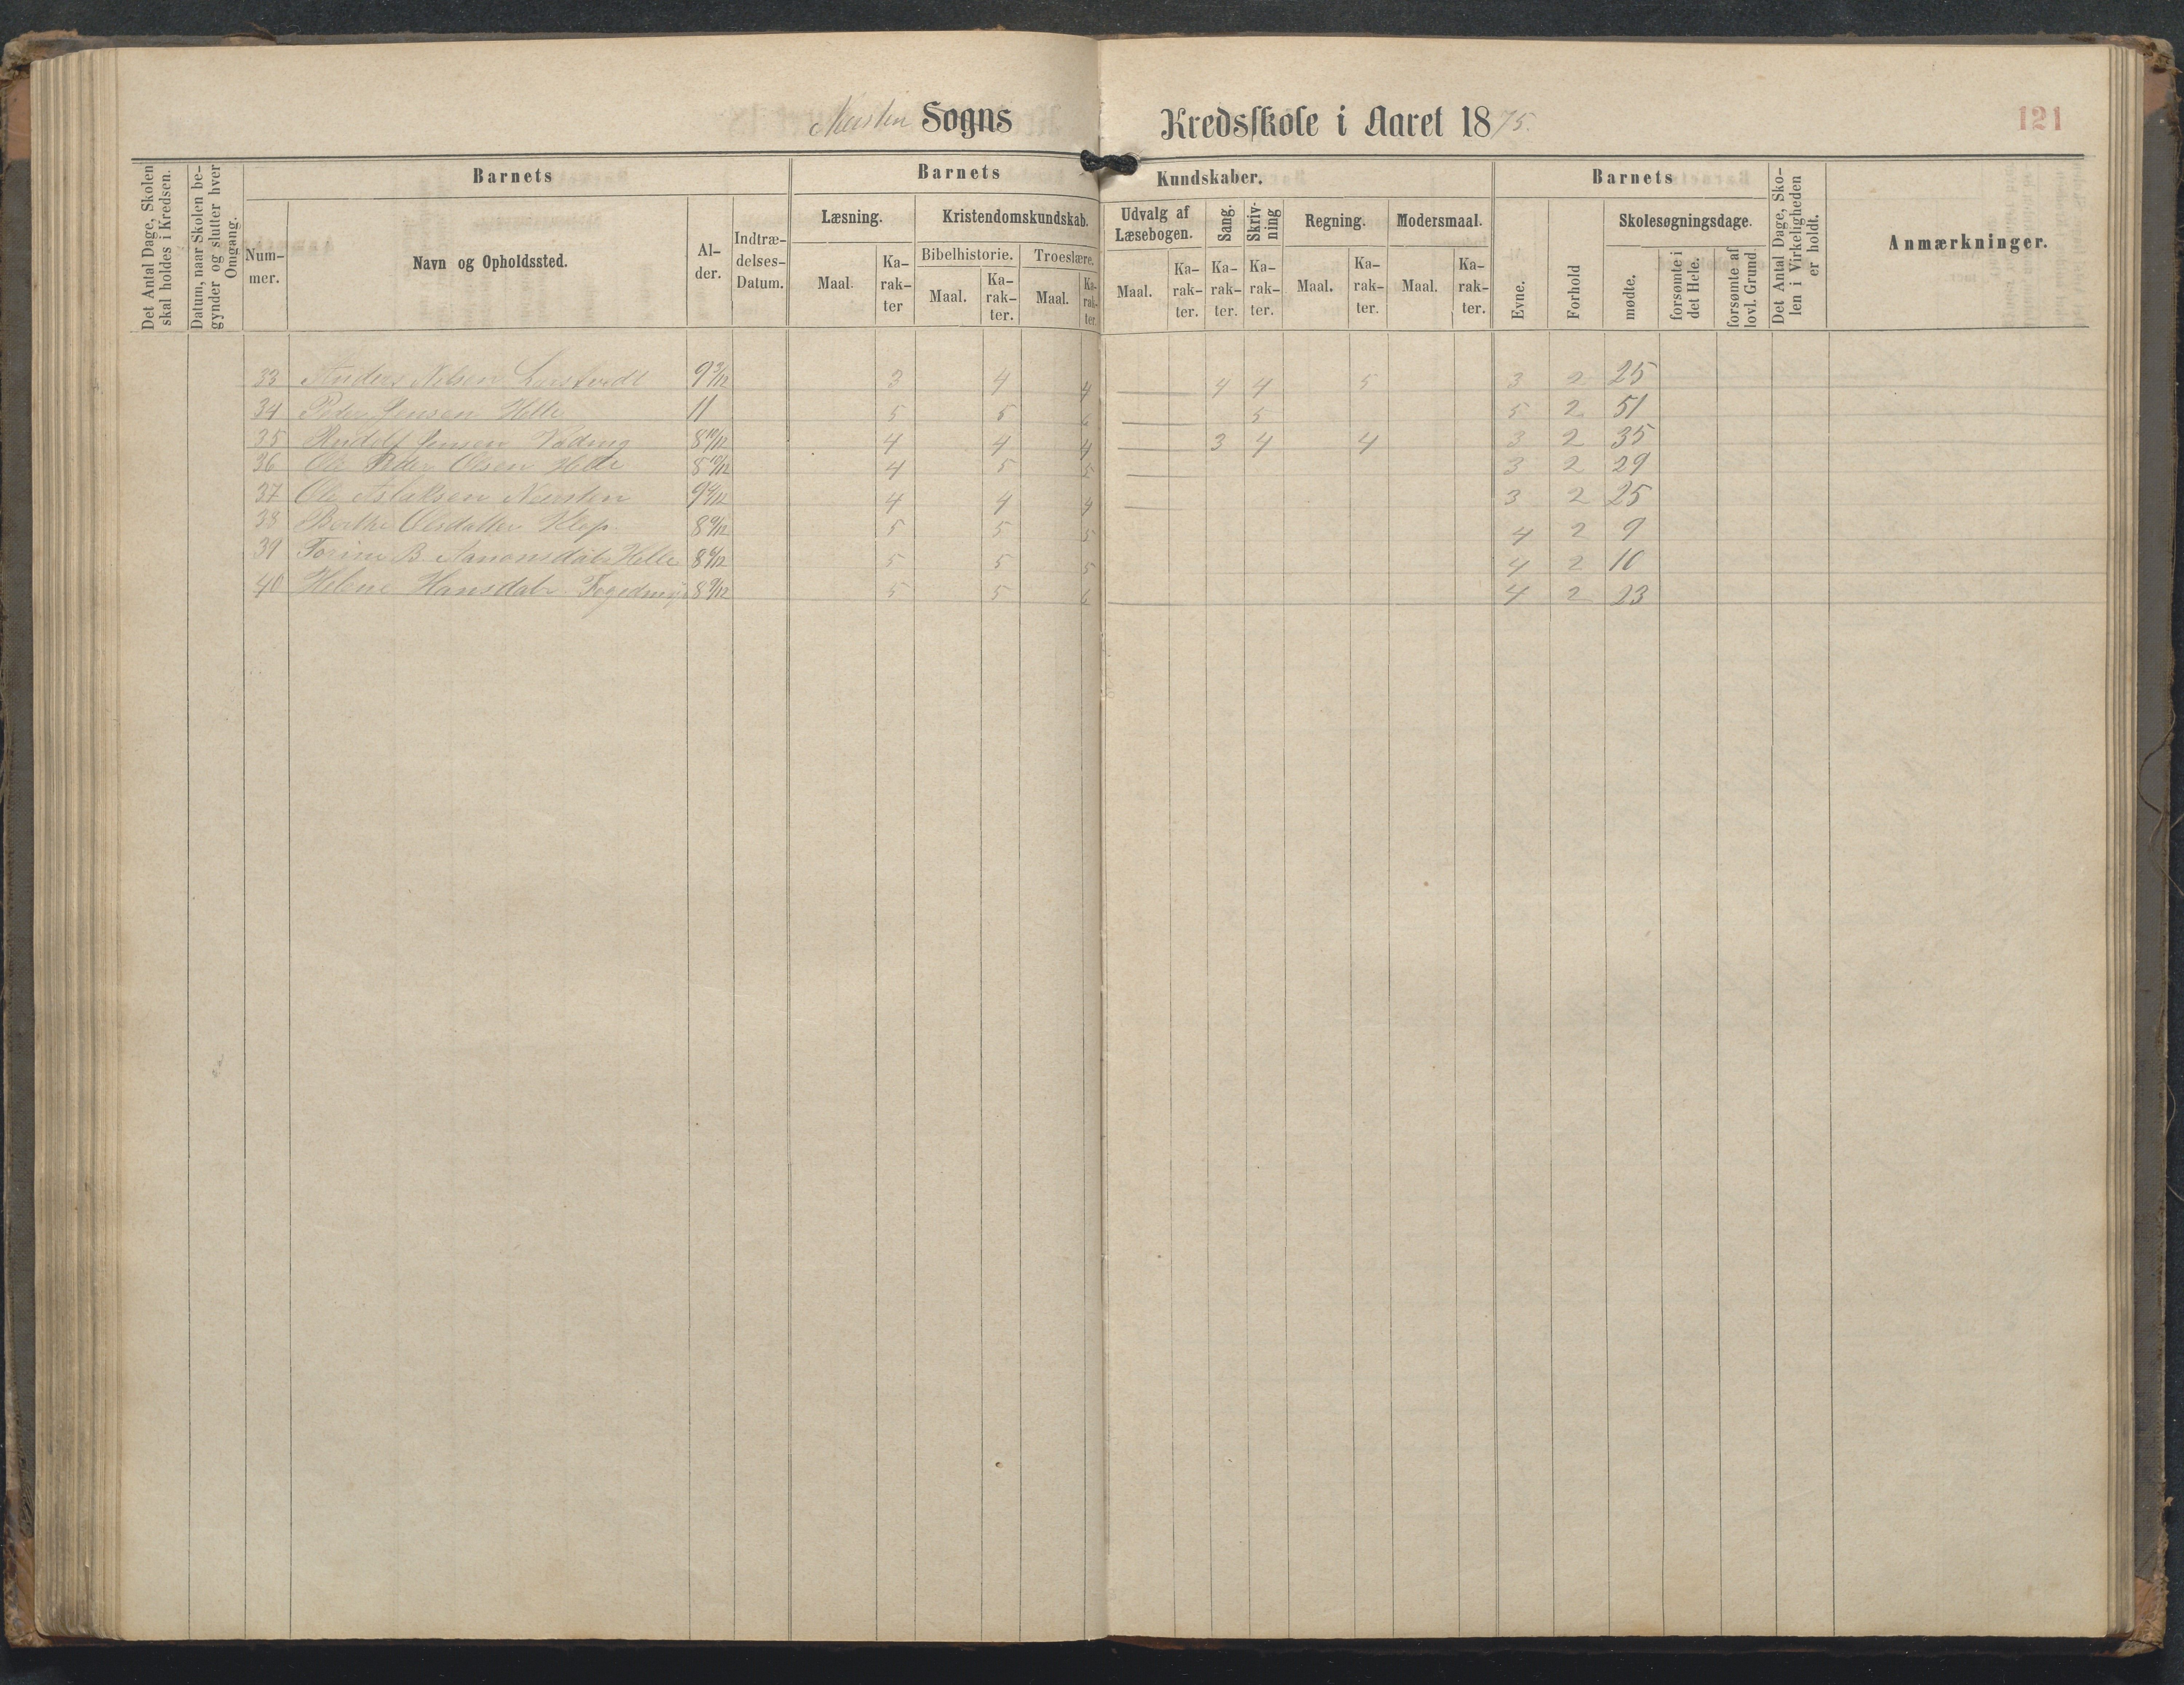 Sogns Kredsskole i Aaret 1875.
121
Det Antal Dage, Skolen skal holdes i Kredsen.
Datum, naar Skolen begynder og slutter hver Omgang.
Barnets
Nummer.
Navn og Opholdssted.
Alder.
Indtrædelses-Datum.
Barnets Kundskaber.
Læsning.
Maal.
Karakter
Kristendomskundskab.
Bibelhistorie.
Maal.
Karakter.
Troeslære.
Maal.
Karakter.
Udvalg af Læsebogen.
Maal.
Karakter.
Sang.
Karakter.
Skrivning
Karakter.
Regning.
Maal.
Karakter.
Modersmaal.
Maal.
Karakter.
Barnets
Evne.
Forhold
Skolesøgningsdage.
mødte.
forsømte i det Hele.
forsømte af lovl. Grund
Det Antal Dage, Skolen i Virkeligheden er holdt.
Anmærkninger.
33 Anders Nilsen 3 4 4 4 4 5 3 2 25
34 Peder Jensen Helle 11 5 5 6 5 5 2 51
35 Rudolf Jensen 8 10/12 4 4 4 3 4 4 3 2 35
36 Ole Peder Olsen Helle 8 10/12 4 5 5 3 2 29
37 Ole Aslaksen 4 4 4 3 2 25
38 Berthe Olsdatter Klep 5 5 5 4 2 9
39 Torine B. Aanonsdatr Helle 5 5 5 4 2 10
40 Helene Hansdatr 5 5 6 4 2 23